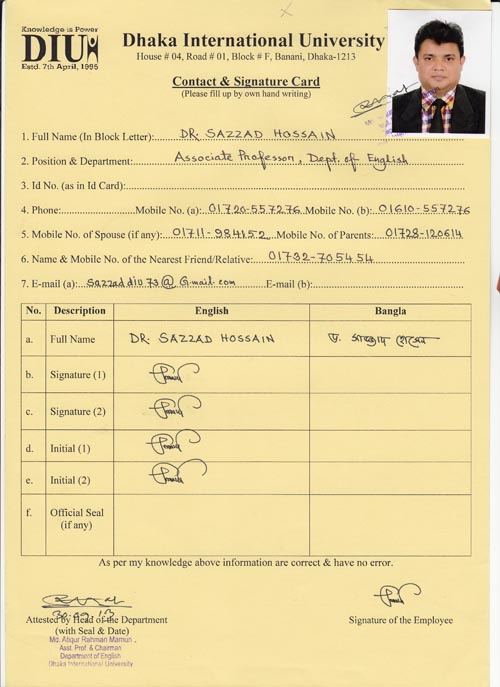 Knowledge is Power
DIU
Estd. 7th April, 1995
Dhaka International University
House # 04, Road # 01, Block # F, Banani, Dhaka-1213
Contact & Signature Card
(Please fill up by own hand writing)
1. Full Name (In Block Letter): DR. SAZZAD HOSSAIN
2. Position & Department: Associate Professor, Dept. of English
3. Id No. (as in Id Card):
4. Phone: Mobile No. (a): 01720-557276 Mobile No. (b): 01610-557276
5. Mobile No. of Spouse (if any): 01711-984152 Mobile No. of Parents: 01728-120614
6. Name & Mobile No. of the Nearest Friend/Relative: 01732-705454
7. E-mail (a): Sazzaddiu73@Gmail.com E-mail (b):
No. Description English Bangla
a. Full Name DR. SAZZAD HOSSAIN ড. সাজ্জাদ হোসেন
b. Signature (1)
c. Signature (2)
d. Initial (1)
e. Initial (2)
f. Official Seal
(if any)
As per my knowledge above information are correct & have no error.
Attested by Head of the Department
(with Seal & Date)
Signature of the Employee
Md. Atiqur Rahman Mamun
Asst. Prof. & Chairman
Department of English
Dhaka International University